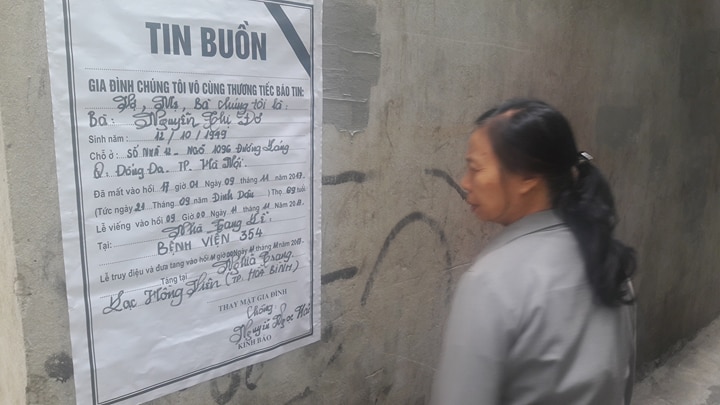 TIN BUỒN
GIA ĐÌNH CHÚNG TÔI VÔ CÙNG THƯƠNG TIẾC BÁO TIN:
Vợ, Mẹ, Bà chúng tôi là:
Bà: Nguyễn Thị Đờ
Sinh năm: 12/10/1949
Chỗ ở: SỐ NHÀ 12 - NGÕ 1096 ĐƯỜNG Láng
Q. Đống Đa. TP. Hà Nội.
Đã mất vào hồi 17 giờ 01 Ngày 09 tháng 11 năm 2017
(Tức ngày 21 Tháng 09 năm Đinh Dậu) Thọ 69 tuổi
Lễ viếng vào hồi 09 Giờ 00 Ngày 11 tháng 11 Năm 2017.
Tại: Nhà Tang Lễ
BỆNH VIỆN 354
Lễ truy điệu và đưa tang vào hồi giờ Ngày 11 tháng 11 năm 2017.
Táng tại Nghĩa Trang
Lạc Hồng Viên (TP. HOÀ BÌNH)
THAY MẶT GIA ĐÌNH
Chồng:
Nguyễn Ngọc Hải
KÍNH BÁO